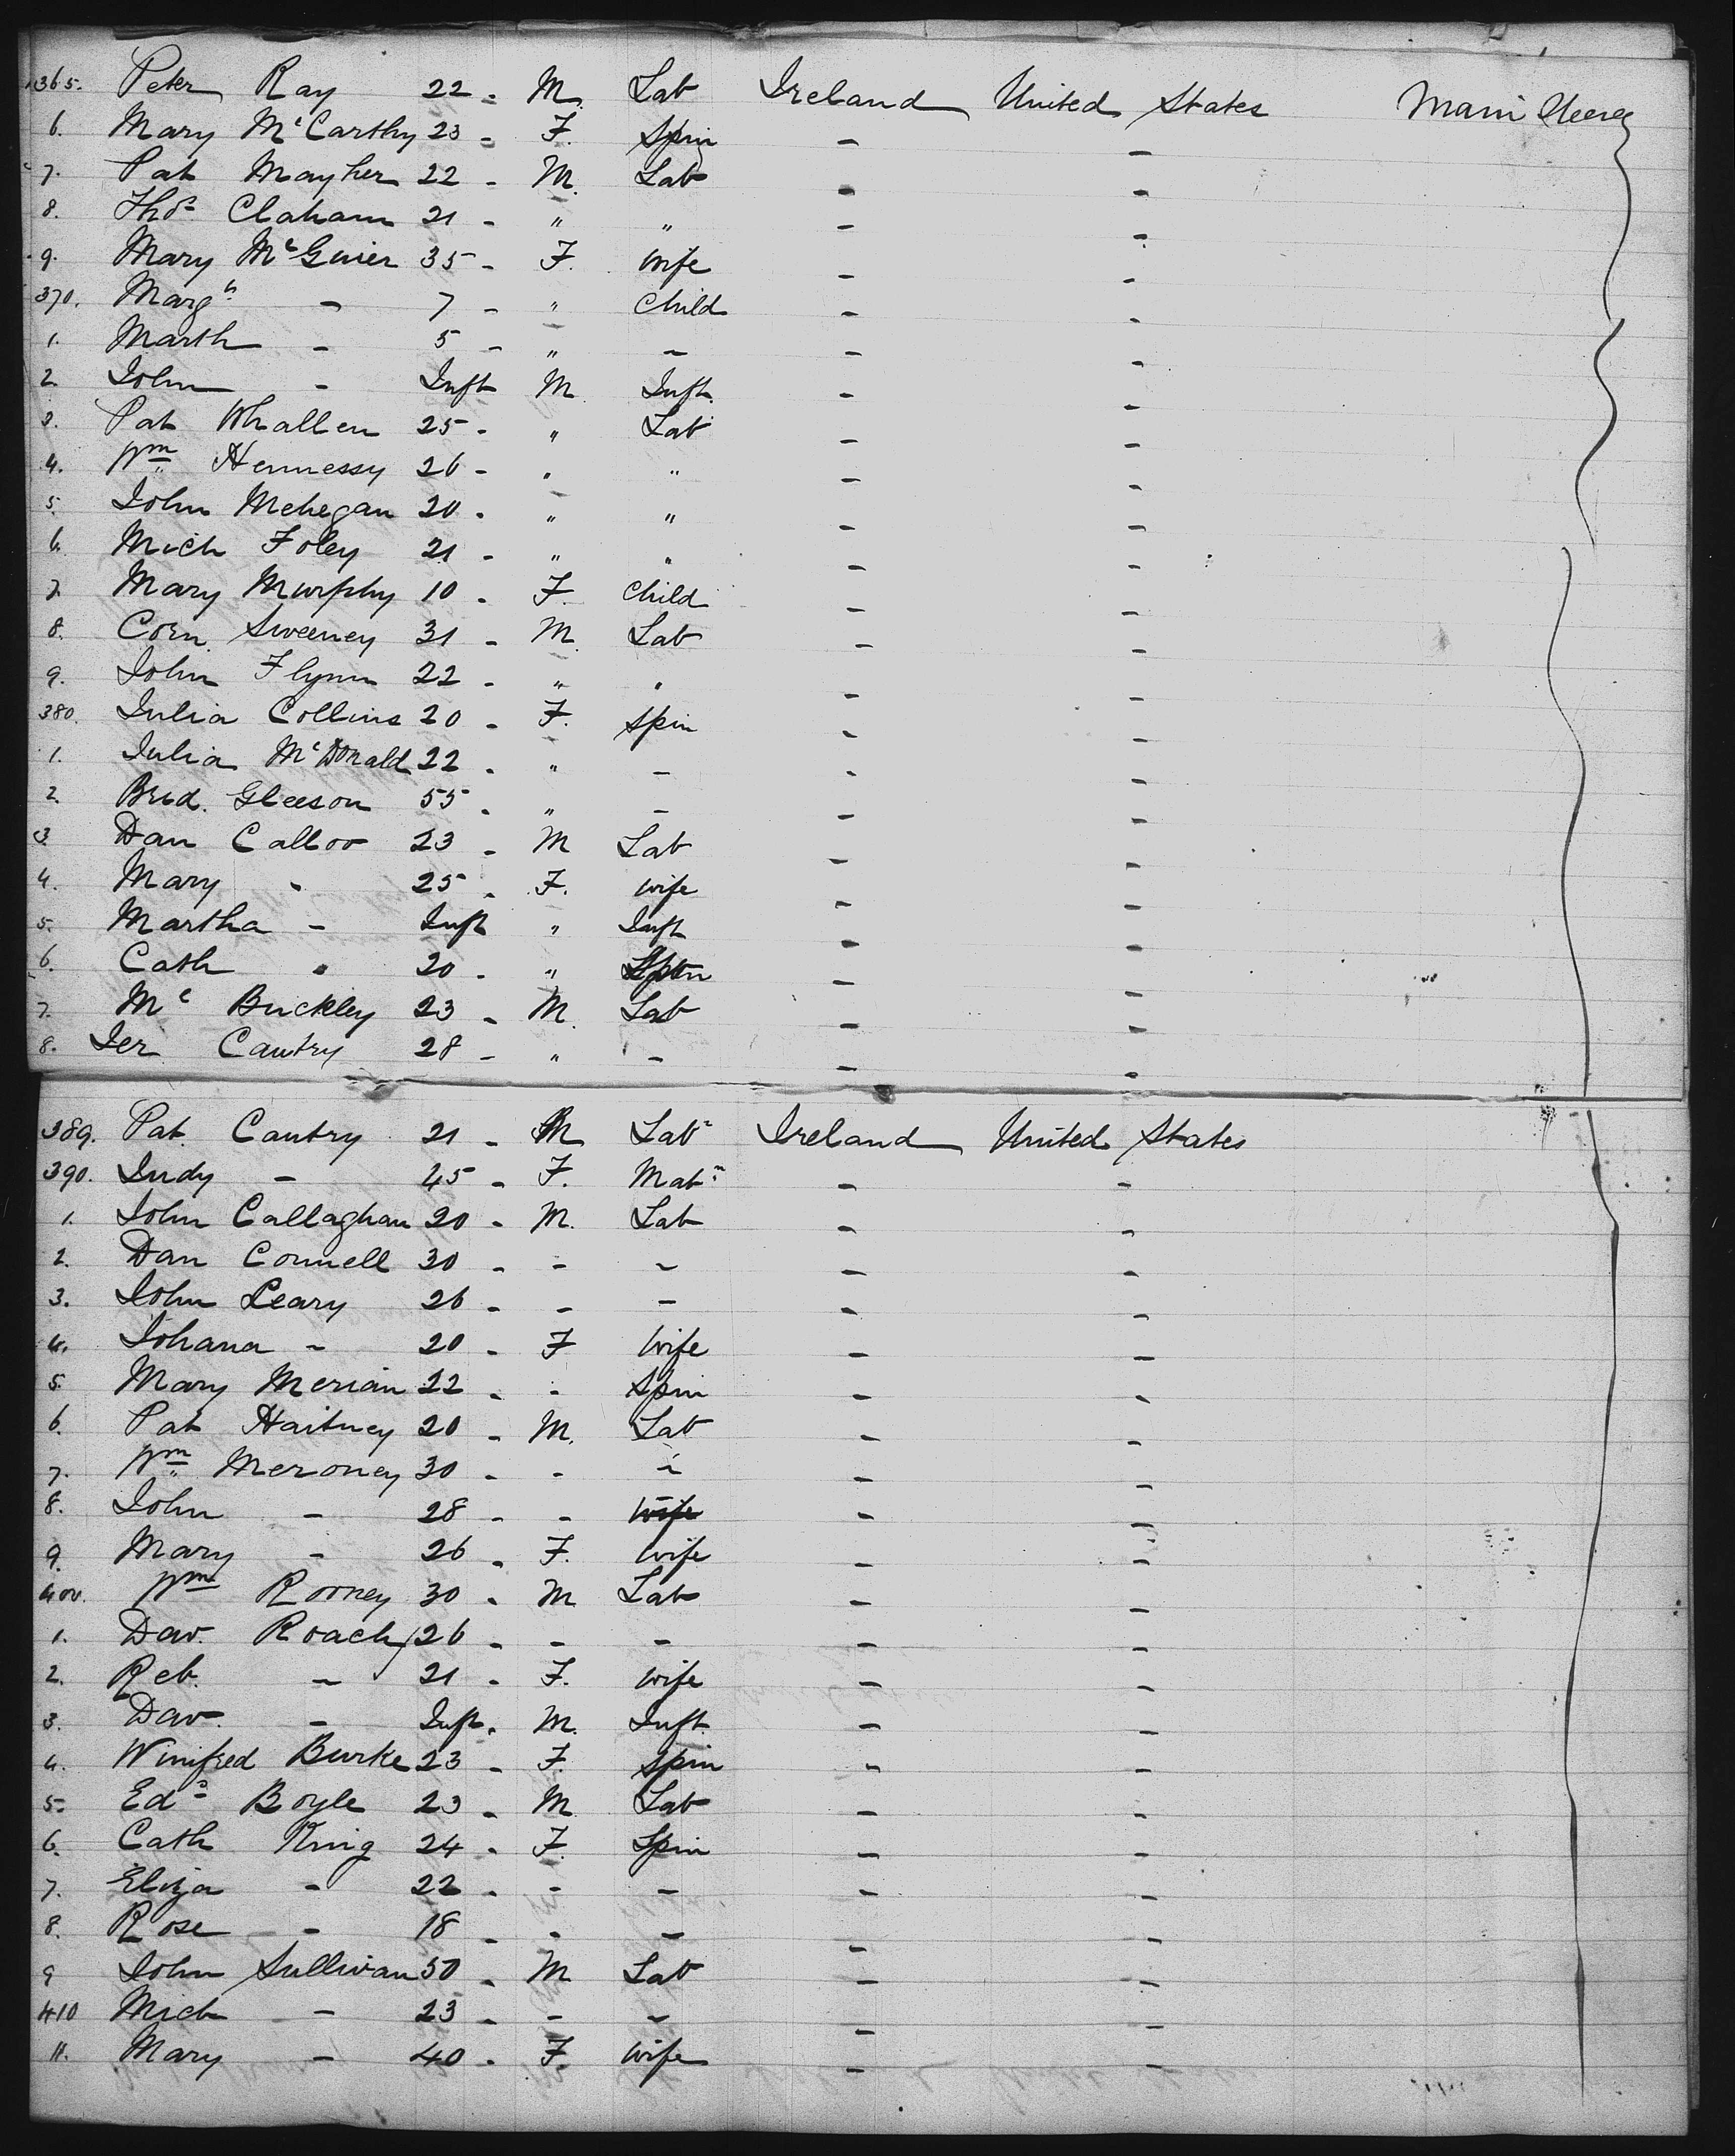 365. Peter Ray 22 - M. Lab Ireland United States Main Deck
6. Mary McCarthy 23 - F. Spin - -
7. Pat Mayher 22 - M. Lab - -
8. Thos Claham 21 - " " - -
9. Mary McGuier 35 - F. Wife - -
370. Margt - 7 - " Child - -
1. Marth - 5 - " - - -
2. John - Inft M. Inft. - -
3. Pat Whallen 25 - " Lab - -
4. Wm Hennessy 26 - " " - -
5. John Mehegan 20 - " " - -
6. Mich Foley 21 - " " - -
7. Mary Murphy 10 - F. Child - -
8. Corn Sweeney 31 - M. Lab - -
9. John Flynn 22 - " " - -
380. Julia Collins 20 - F. Spin - -
1. Julia McDonald 22 - " - - -
2. Brid. Gleeson 55 - " - - -
3. Dan Calloo 23 - M Lab - -
4. Mary - 25 - F. Wife - -
5. Martha - Inft " Inft - -
6. Cath - 20 - " Spin - -
7. Mc Buckley 23 - M. Lab - -
8. Jer Cantry 28 - " - - -
389. Pat. Cantry 21 - M Lab Ireland United States
390. Judy - 45 - F. Matn - -
1. John Callaghan 20 - M. Lab - -
2. Dan Connell 30 - - - - -
3. John Leary 26 - - - - -
4. Johana - 20 - F Wife - -
5. Mary Merian 22 - - Spin - -
6. Pat Haitney 20 - M. Lab - -
7. Wm Meroney 30 - - - - -
8. John - 28 - - Wife - -
9. Mary - 26 - F. Wife - -
400. Wm Rooney 30 - M Lab - -
1. Dav. Roach 26 - - - - -
2. Reb. - 21 - F. Wife - -
3. Dav. - Inft. M. Inft. - -
4. Winifred Burke 23 - F. Spin - -
5. Edd Boyle 23 - M Lab - -
6. Cath King 24 - F. Spin - -
7. Eliza - 22 - - - - -
8. Rose - 18 - - - - -
9 John Sullivan 50 - M Lab - -
410 Mich - 23 - - - - -
11. Mary - 40 - F. Wife - -